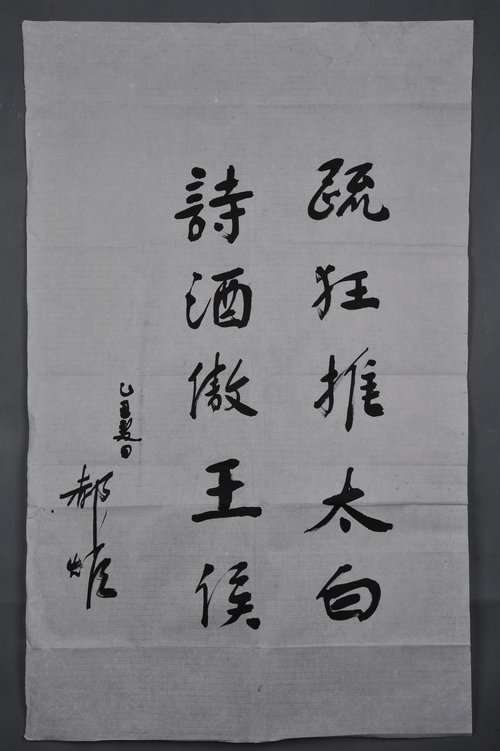 疏狂推太白
詩酒傲王侯
乙酉夏日
郝